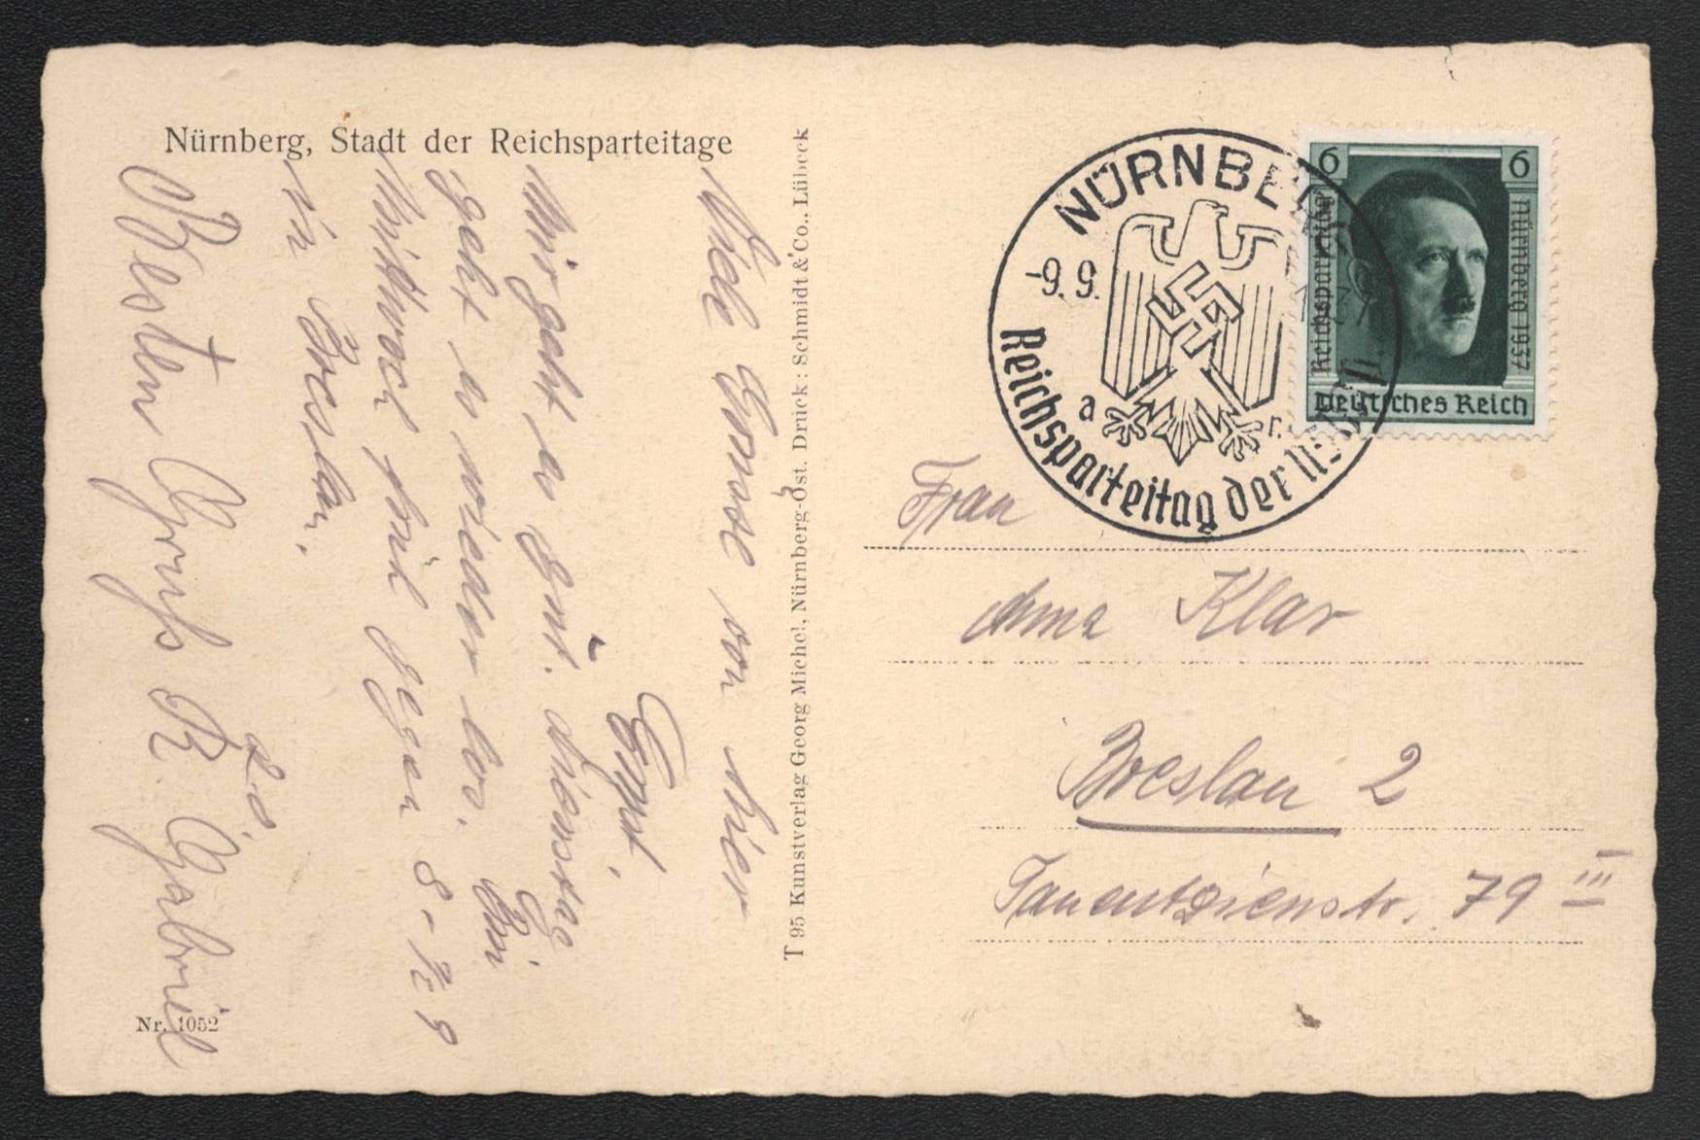 Nürnberg, Stadt der Reichsparteitage
Viele Grüsse von hier
Ernst,
Mir geht es gut. Dienstag
geht es wieder los. Bin
Mittwoch früh gegen 8 -
in Breslau.
Besten Gruß R. Gabriel
Nr. 1052
T 95 Kunstverlag Georg Michel, Nürnberg-Ost. Druck: Schmidt & Co., Lübeck
NÜRNBERG
-9.9.
a
r.
Reichsparteitag der NSDAP
6 6
Reichsparteitag
Nürnberg 1937
Deutsches Reich
Frau
Anna Klar
Breslau 2
Tauentzienstr. 79 III